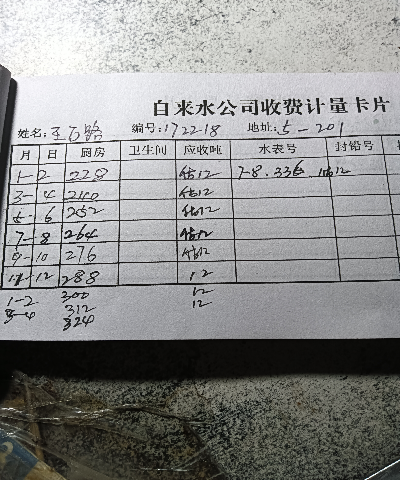 自来水公司收费计量卡片
姓名: 王石路 编号: 172218 地址: 5-201
月 日 厨房 卫生间 应收吨 水表号 封铅号
1-2 228 估12 7-8.336
3-4 240 估12
5-6 252 估12
7-8 264 估12
9-10 276 估12
11-12 288 12
1-2 300 12
3-4 312 12
324